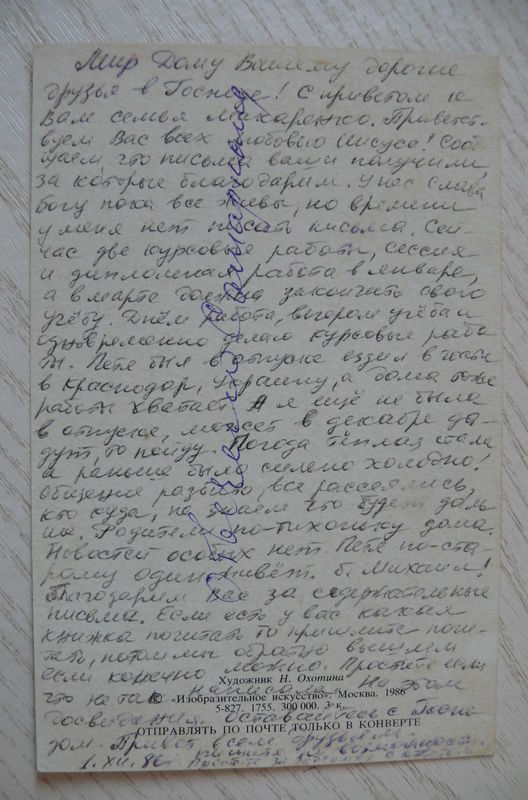 Мир Дому Вашему дорогие
друзья в Господе! С приветом к
Вам семья Макаренко. Приветст-
вуем Вас всех любовью Иисуса! Сооб-
щаем, что письма ваши получили,
за которые благодарим. У нас слава
Богу пока все живы, но времени
у меня нет писать письма. Сей-
час две курсовые работы, сессия
и дипломная работа в январе,
а в марте должна закончить свою
учёбу. Днём работа, вечером учёба и
одновременно делаю курсовые рабо-
ты. Петя был в отпуске ездил в гости
в Краснодар, Украину, а дома тоже
работы хватает. А я ещё не была
в отпуске, может в декабре да-
дут, то пойду. Погода тёплая стала
а раньше было сильно холодно!
Общение разбито, все рассеялись,
кто куда, не знаем что будет даль-
ше. Родители по-тихоньку дома.
Новостей особых нет. Петя по-ста-
рому один живёт. б. Михаил!
Благодарем Вас за содержательные
письма. Если есть у вас какая
книжка почитать то пришлите почи-
тать, потом мы обратно вышлем
если конечно можно. Простите если
Художник Н. Охотина
что не так написала. На этом
© «Изобразительное искусство». Москва. 1986
5-827. 1755. 300 000. 3 к.
досвидания. Оставайтесь с Госпо-
ОТПРАВЛЯТЬ ПО ПОЧТЕ ТОЛЬКО В КОНВЕРТЕ
дом. Привет всем друзьям.
1.XII.86г. простите за